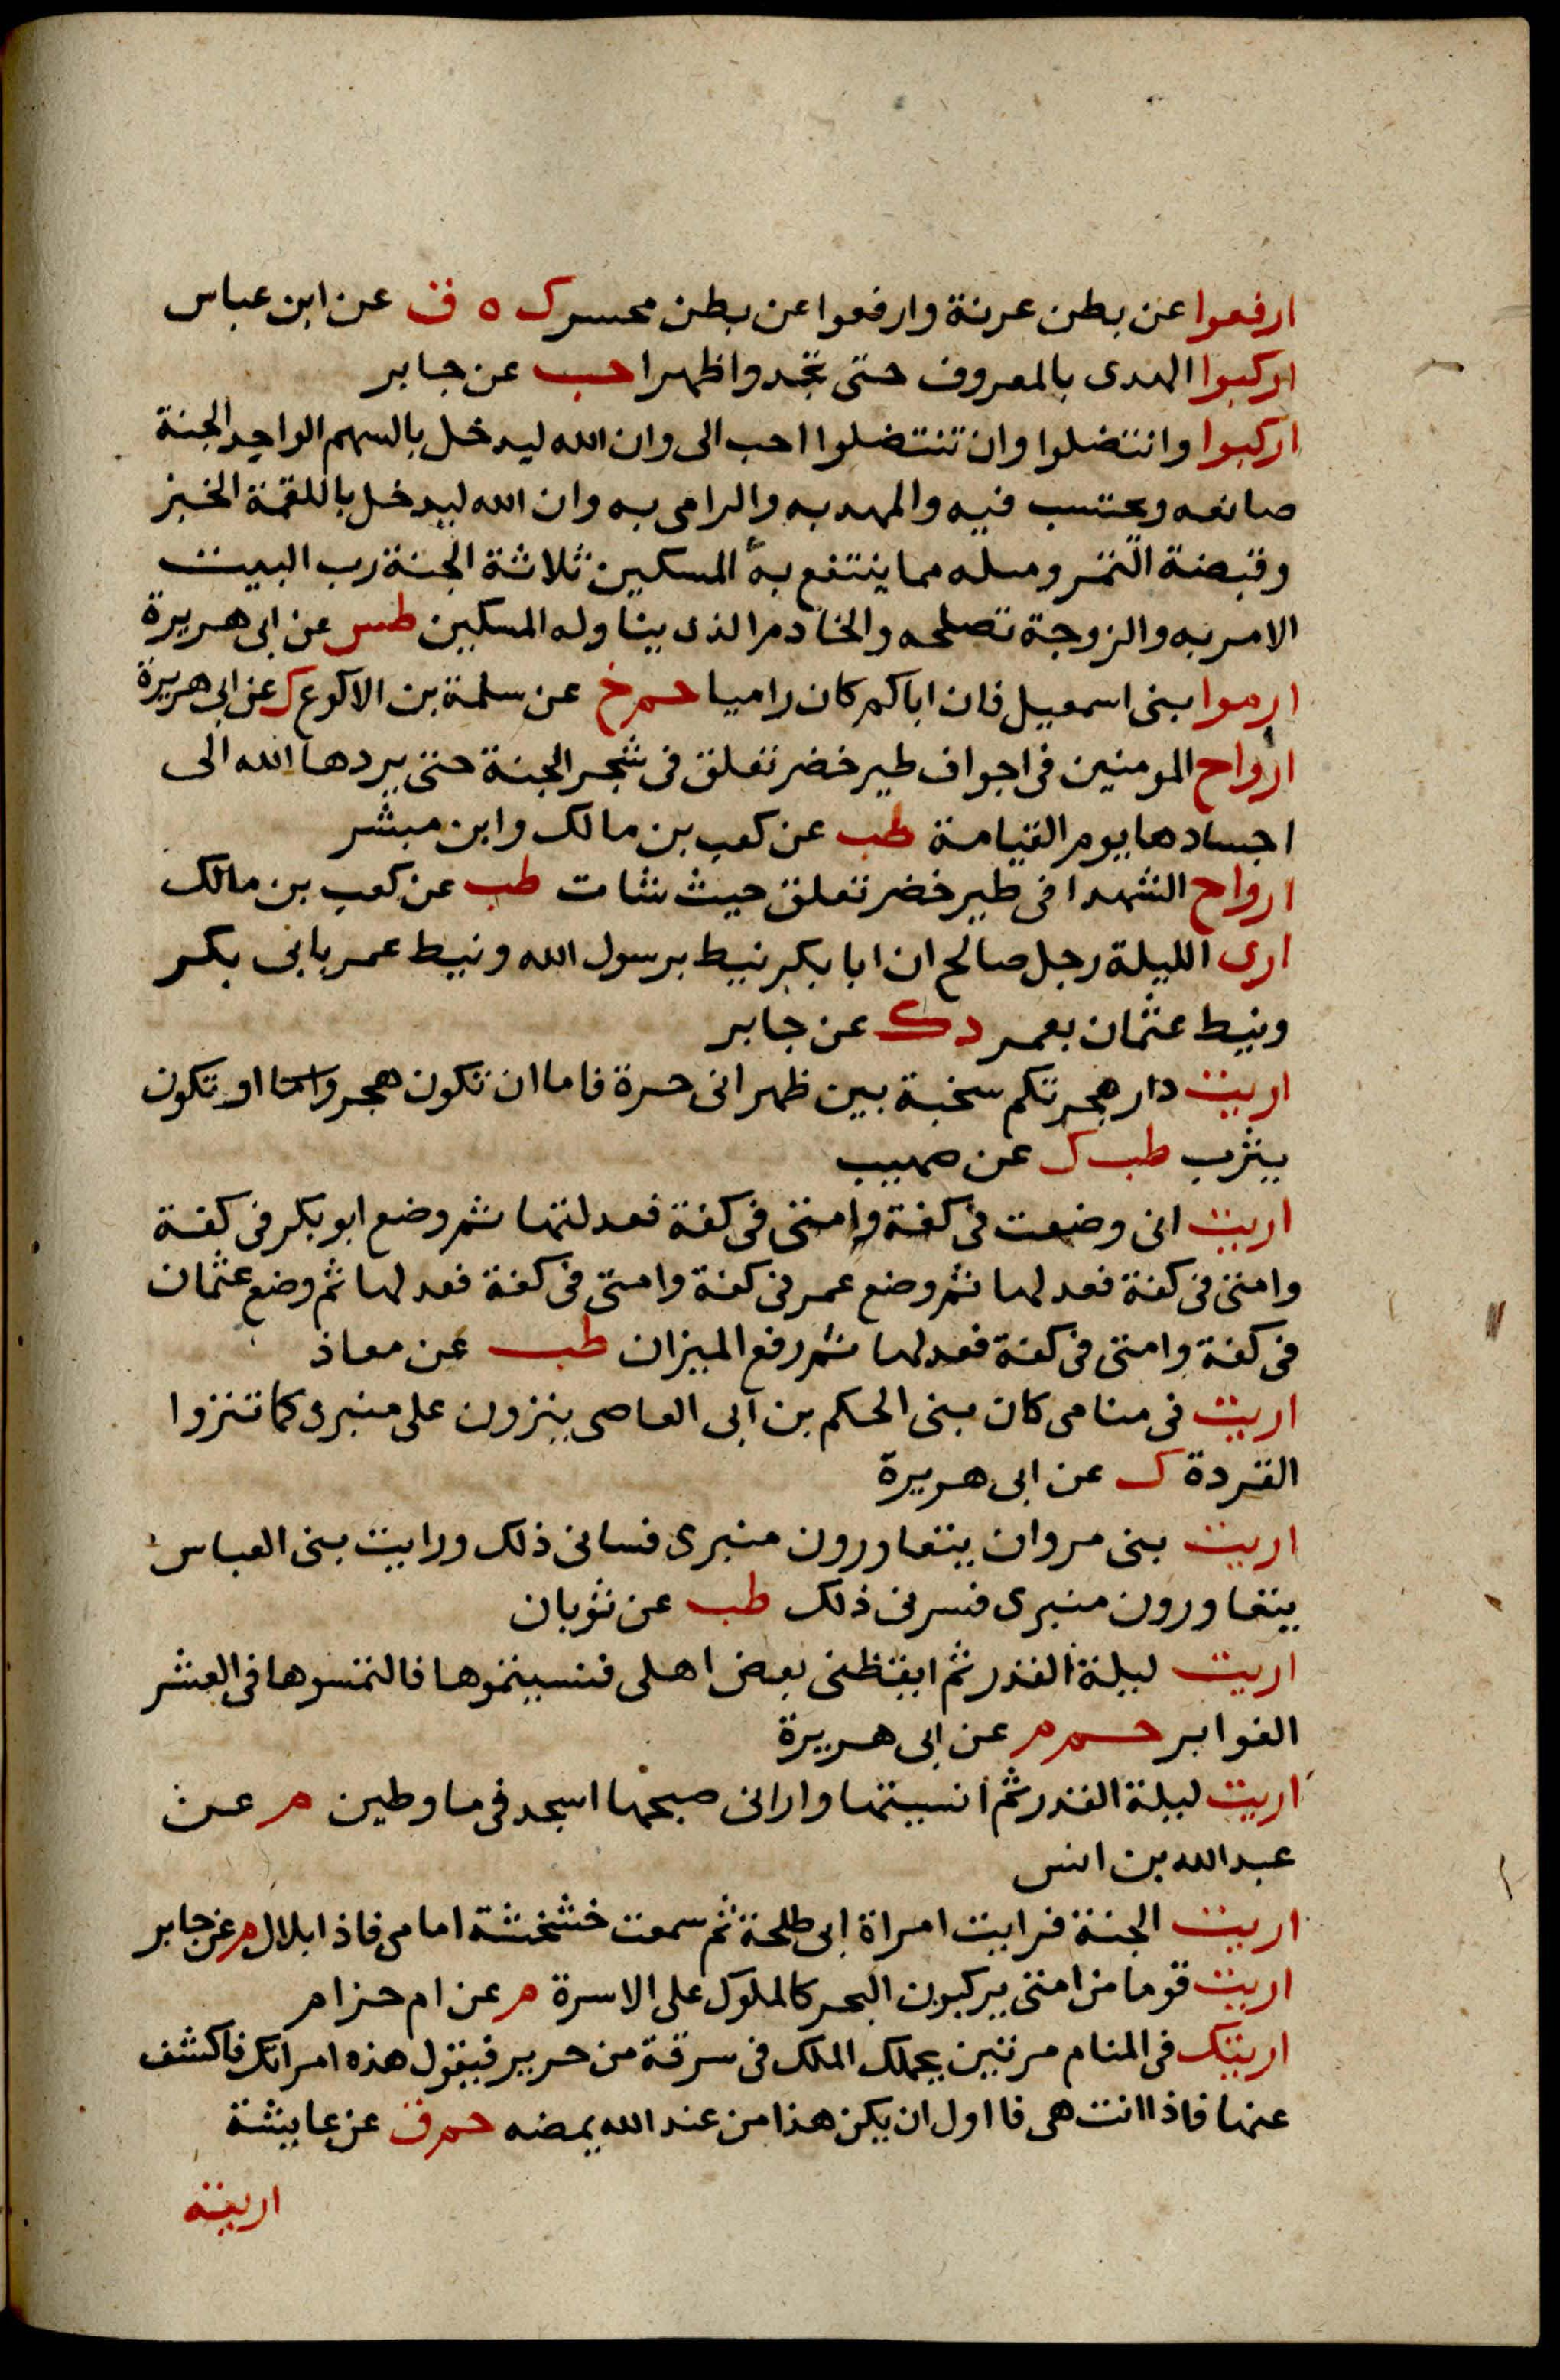 ارفعوا عن بطن عرنة وارفعوا عن بطن محسر ك ه ق عن ابن عباس
اركبوا الهدى بالمعروف حتى تجدوا ظهرا حب عن جابر
اركبوا وانتضلوا وان تنتضلوا احب الى وان الله ليدخل بالسهم الواحد الجنة
صانعه ويحتسب فيه والمهد به والرامى به وان الله ليدخل باللقمة الخبز
وقبضة التمر ومسله مما ينتفع به المسكين ثلاثة الجنة رب البيت
الامر به والزوجة تصلحه والخادم الذى يناوله المسكين طس عن ابى هريرة
ارموا بنى اسمعيل فان اباكم كان راميا حم خ عن سلمة بن الاكوع ك عن ابى هريرة
ارواح المومنين فى اجواف طير خضر تعلق فى شجر الجنة حتى يردها الله الى
اجسادها يوم القيامة طب عن كعب بن مالك وابن مبشر
ارواح الشهدا فى طير خضر تعلق حيث شات طب عن كعب بن مالك
ارى الليلة رجل صالح ان ابا بكر نيط برسول الله ونيط عمر بابى بكر
ونيط عثمان بعمر د ك عن جابر
اريت دار هجرتكم سخبة بين ظهرانى حرة فاما ان تكون هجر واما او تكون
يثرب طب ك عن صهيب
اريت انى وضعت فى كفة وامتى فى كفة فعدلتها ثم وضع ابو بكر فى كفة
وامتى فى كفة فعدلها ثم وضع عمر فى كفة وامتى فى كفة فعدلها ثم وضع عثمان
فى كفة وامتى فى كفة فعدلها ثم رفع الميزان طب عن معاذ
اريت فى منامى كان بنى الحكم بن ابى العاصى ينزون على منبرى كما تنزوا
القردة ك عن ابى هريرة
اريت بنى مروان يتعاورون منبرى فسانى ذلك ورايت بنى العباس
يتعاورون منبرى فسرنى ذلك طب عن ثوبان
اريت ليلة القدر ثم ايقظنى بعض اهلى فنسيتموها فالتمسوها فى العشر
الغوابر حم م عن ابى هريرة
اريت ليلة القدر ثم انسيتها وارانى صبحها اسجد فى ما وطين م عن
عبد الله بن انس
اريت الجنة فرايت امراة ابى طلحة ثم سمعت خشخشة امامى فاذا بلال م عن جابر
اريت قوما من امتى يركبون البحر كالملوك على الاسرة م عن ام حزام
اريتك فى المنام مرتين يحملك الملك فى سرقة من حرير فيقول هذه امراتك فاكشف
عنها فاذا انت هى فااول ان يكن هذا من عند الله يمضه حم ق عن عايشة
اريته